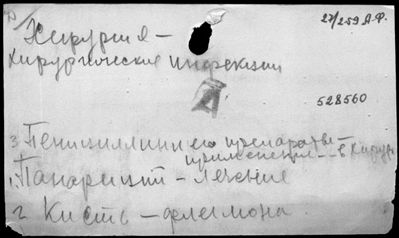 Хирургия —
27/259 А.Ф.
хирургические инфекции
А
528560
3. Пенициллин и его препараты —
применение -- в хирург.
1. Панариций — лечение
2. Кисть — флегмона.